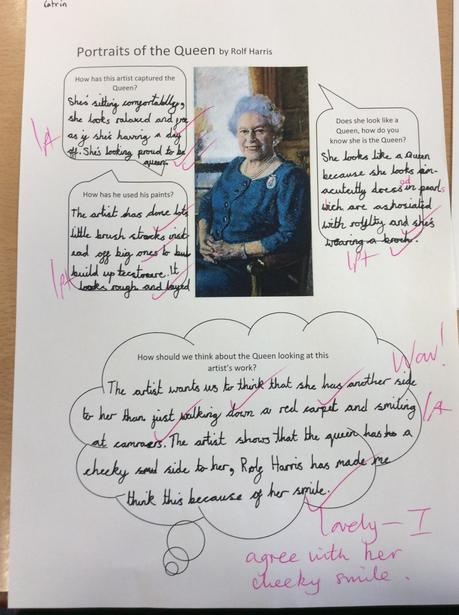 Catrin
Portraits of the Queen by Rolf Harris
How has this artist captured the
Queen?
She's sitting comfortably,
she looks relaxed and
as if she's having a day
off. She's looking proud to be
queen
1A
Does she look like a
Queen, how do you
know she is the Queen?
She looks like a Queen
because she looks
dressed in pearls
wich are
with and she's
wearing a broch.
1A
How has he used his paints?
The artist has done lots
little brush inst
ead off big ones to bui
build up It
looks rough and layed
1A
How should we think about the Queen looking at this
artist's work?
The artist wants us to think that she has another side
to her than just walking down a red carpet and smiling
at . The artist shows that the queen has a
cheeky side to her, Rolf Harris has made me
think this because of her smile.
Wow!
1A
lovely – I
agree with her
cheeky smile.